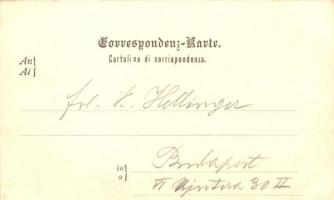 Correspondenz-Karte.
Cartolina di corrispondenza.
An
Al
frl. K. Hellinger
in
a
Budapest
VI 30 II